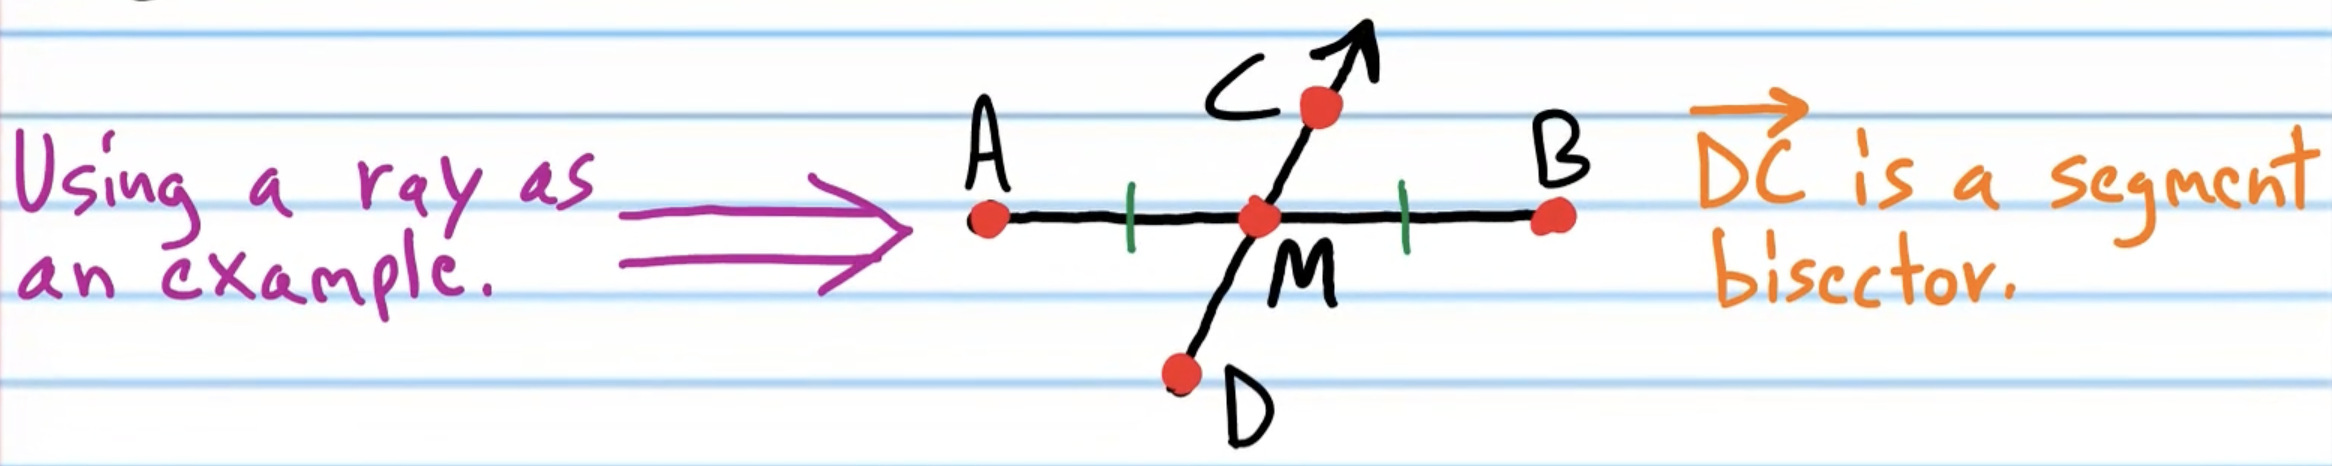 Using a ray as
an example.
C
A
B
M
D
DC is a segment
bisector.